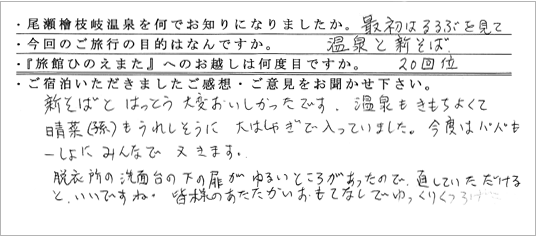 ・尾瀬檜枝岐温泉を何でお知りになりましたか。最初はるるぶを見て
・今回のご旅行の目的はなんですか。温泉と新そば
・『旅館ひのえまた』へのお越しは何度目ですか。20回位
・ご宿泊いただきましたご感想・ご意見をお聞かせ下さい。
新そばと はっとう 大変おいしかったです。温泉もきもちよくて
晴菜(孫)もうれしそうに 大はしゃぎで入っていました。今度はパパも
一しょに みんなで 又きます。
脱衣所の洗面台の下の扉がゆるいところがあったので、直していただける
と、いいですね。皆様のあたたかいおもてなしでゆっくりくつろげ